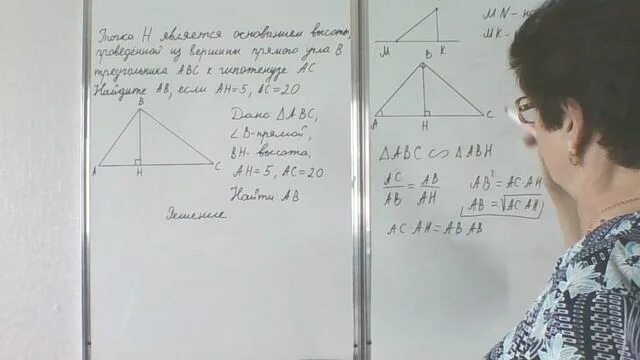 Точка H является основанием высоты,
проведённой из вершины прямого угла B
треугольника ABC к гипотенузе AC
Найдите AB, если AH=5, AC=20
B
A
H
C
Дано: △ABC,
∠B-прямой,
BH-высота,
AH=5, AC=20
Найти: AB
Решение
MN-
MK-
M
K
B
A
H
C
△ABC ∽ △ABH
AC/AB = AB/AH
AB²=AC·AH
AB=√AC·AH
AC·AH=AB·AB